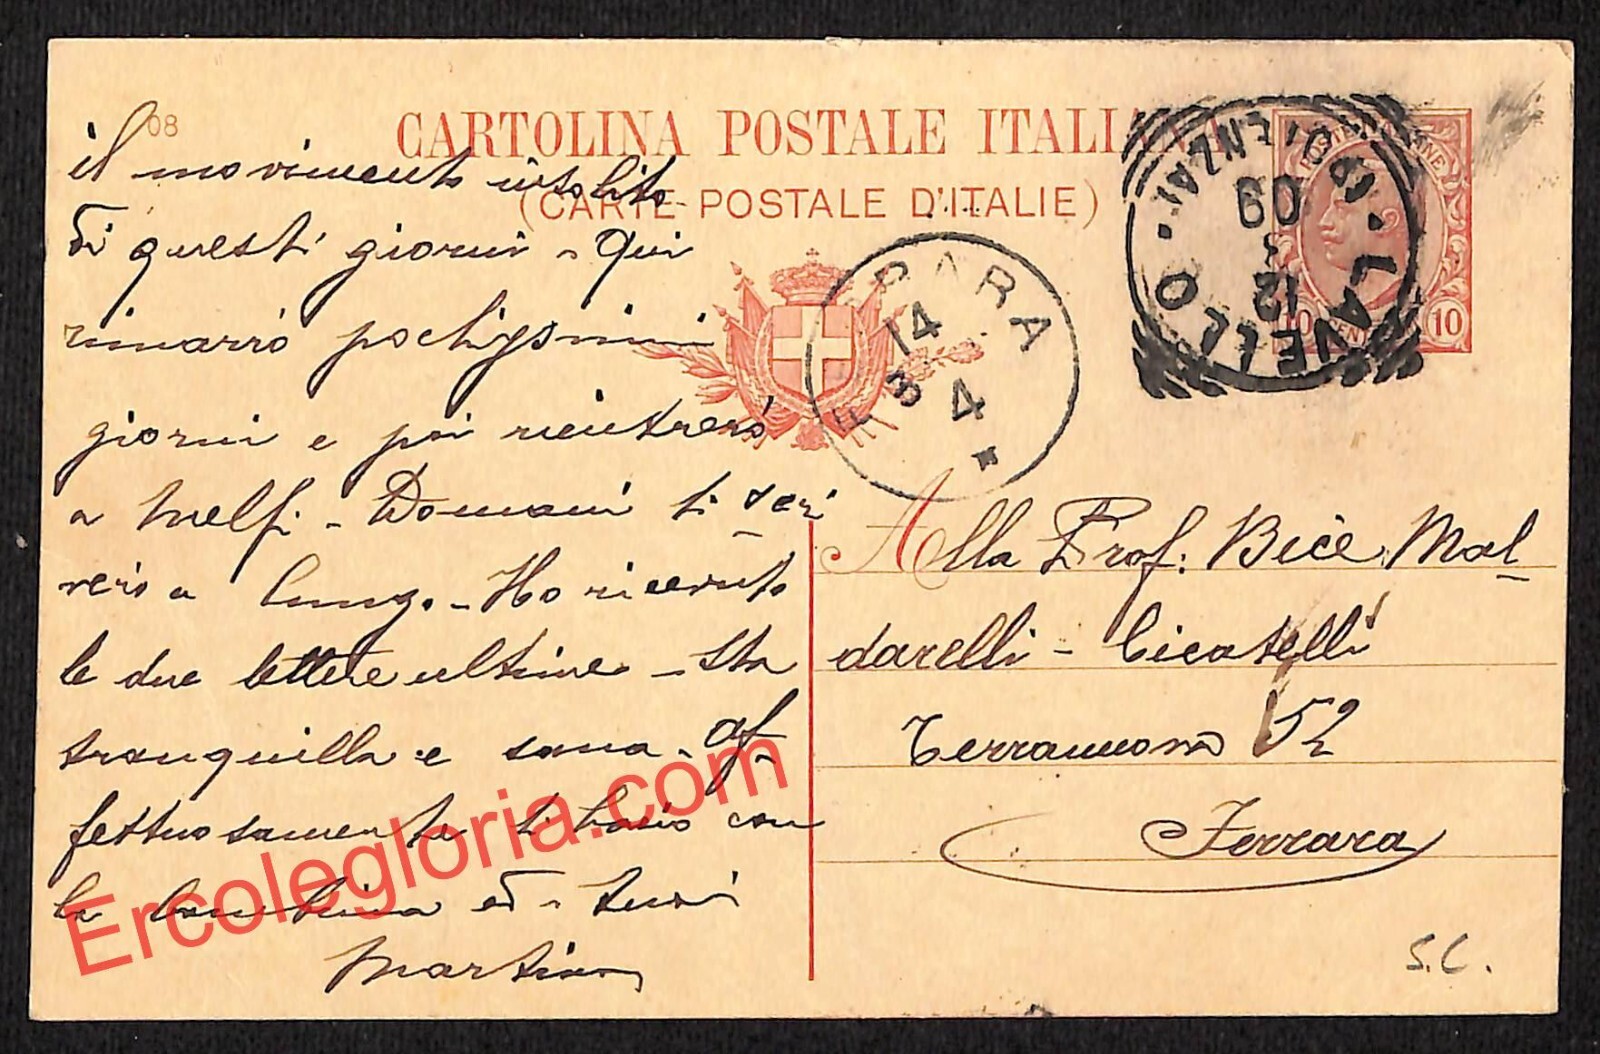 08
CARTOLINA POSTALE ITALIANA
(CARTE POSTALE D'ITALIE)
POSTE ITALIANE
10 CENT 10
LAVELLO (POTENZA)
12 3 09
FERRARA
14 3 4
il movimento insolito
di questi giorni - Qui
rimarrò pochissimi
giorni e poi rientrerò
a Melfi - Domani ti scri
verò a lungo - Ho ricevuto
le due lettere ultime - Sta
tranquilla e sana - Af
fettuosamente ti bacio con
la bambina ed i tuoi
Martino
Alla Prof. Bice Mal
darelli - Cicatelli
Terranuova 52
Ferrara
S.C.
Ercolegloria.com